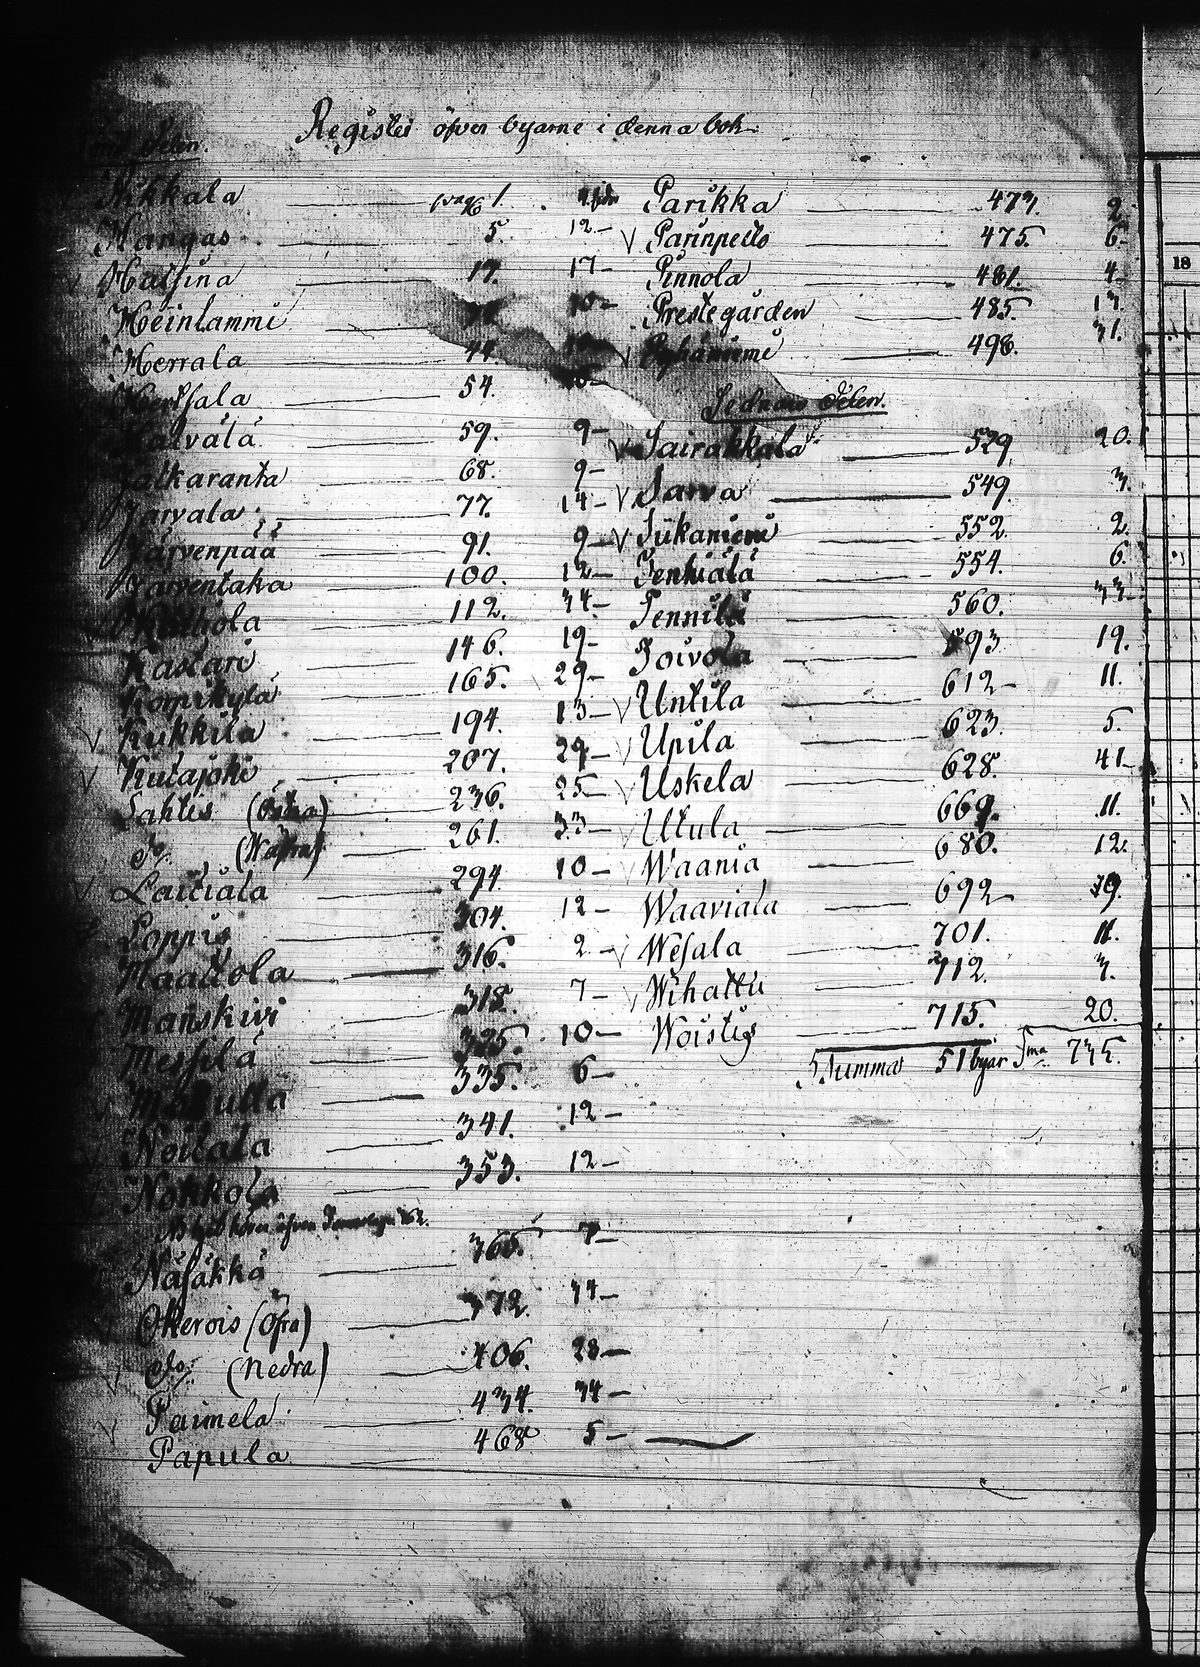 Register öfver byarne i denna bok
delen.
Ahkkala pag. 1.
Kangas 5. 12-
Hatsina 17. 17-
Heinlammi 10-
Herrala 44.
Hertsala 54.
Kalvala 59. 9-
Jalkaranta 68. 9-
Jarvala 77. 14-
Järvenpää 91. 9-
Järventaka 100. 12-
112. 34-
Kastari 146. 19-
Konnikylä 165. 29-
Kukkila 194. 13-
Kutajoki 207. 29-
Lahtis (Östra) 236. 25-
Do. (Wästra) 261. 33-
Laitiala 294 10-
Loppis 304. 12-
Maattola 316. 2-
Manskivi 318. 7-
Messilä 325. 10-
335. 6-
Noitala 341. 12-
Nokkola 353. 12-
Näsäkkä 365. 7-
Okerois (Öfra) 372. 34-
Do. (Nedra) 406. 28-
Paimela 434. 34-
Papula 468 5-
Parikka 473. 2
Parinpelto 475. 6
Pinnola 481. 4
Prestegården 485. 13
Pyhäniemi 498. 31.
Sednare delen.
Sairakkala 529 20.
Sarva 549. 3.
Siikaniemi 552. 2.
Tenhiälä 554. 6.
Tennilä 560. 33
Toivola 593 19.
Untila 612 11.
Upila 623. 5.
Uskela 628. 41.
Utula 669. 11.
Waania 680. 12.
Waaviala 692 9.
Wesala 701. 11.
Wihattu 712. 3.
Woistis 715. 20.
Summa 51 byar Sma 735.
18